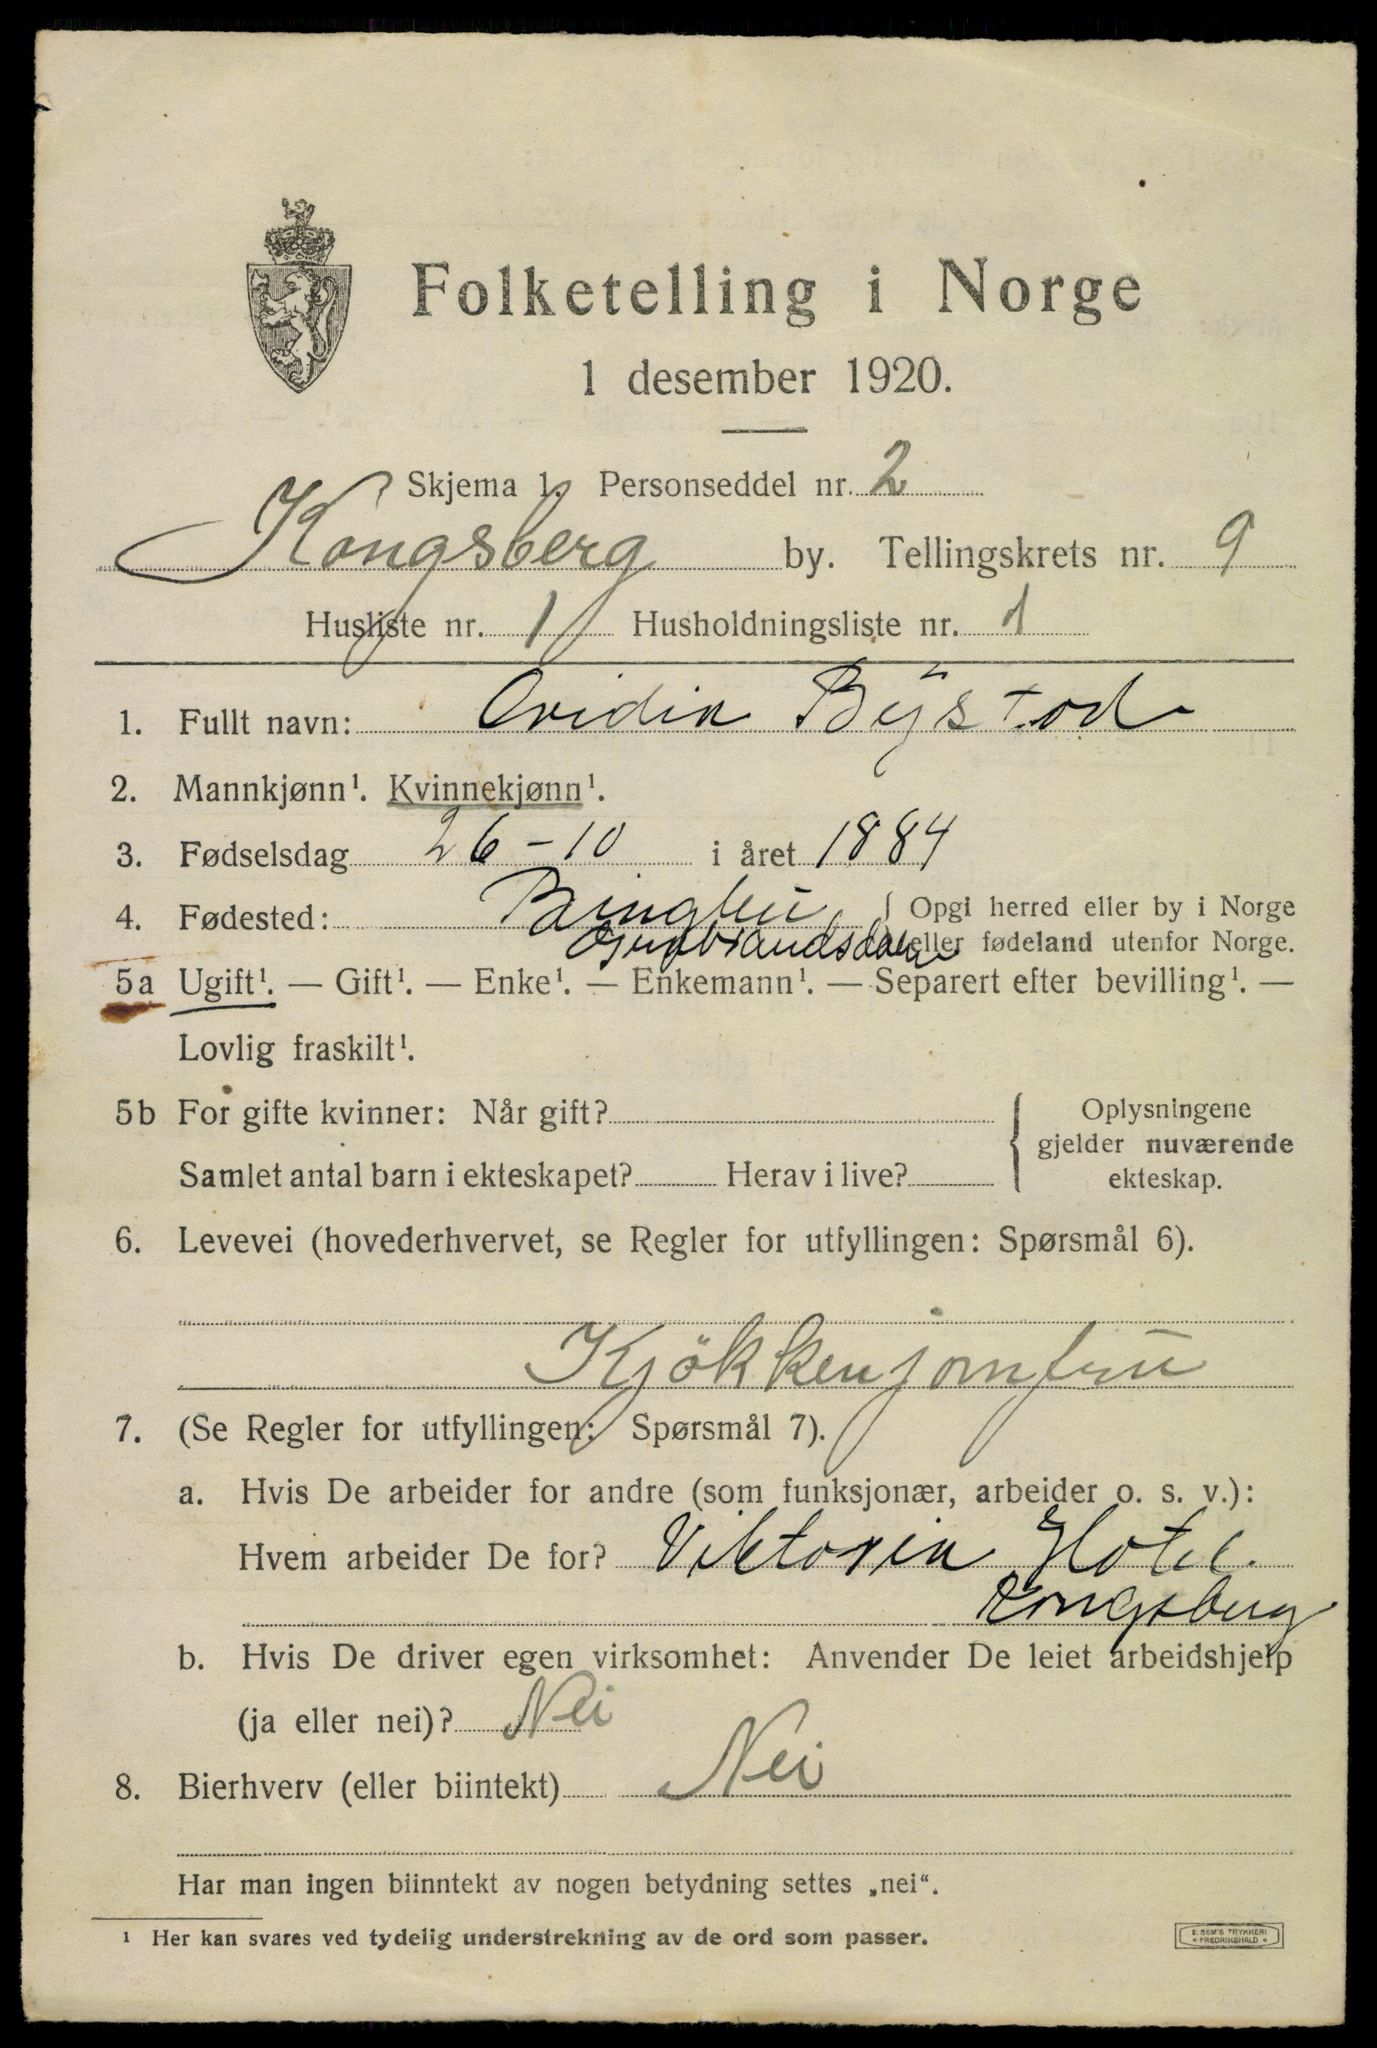 Folketelling i Norge
1 desember 1920.
Skjema 1. Personseddel nr. 2
Kongsberg by. Tellingskrets nr. 9
Husliste nr. 1 Husholdningsliste nr. 1
1. Fullt navn: Ovidia Bÿstod
2. Mannkjønn¹. Kvinnekjønn¹.
3. Fødselsdag 26-10 i året 1884
4. Fødested: Ringbu { Opgi herred eller by i Norge
Gudbrandsdalen eller fødeland utenfor Norge.
5a Ugift¹. — Gift¹. — Enke¹. — Enkemann¹. — Separert efter bevilling¹. —
Lovlig fraskilt¹.
5b For gifte kvinner: Når gift? Oplysningene
gjelder nuværende
Samlet antal barn i ekteskapet? Herav i live? ekteskap.
6. Levevei (hovederhvervet, se Regler for utfyllingen: Spørsmål 6).
Kjökkenjomfru
7. (Se Regler for utfyllingen: Spørsmål 7).
a. Hvis De arbeider for andre (som funksjonær, arbeider o. s. v.):
Hvem arbeider De for? Viktoria Hotel.
Kongsberg
b. Hvis De driver egen virksomhet: Anvender De leiet arbeidshjelp
(ja eller nei)? Nei
8. Bierhverv (eller biintekt) Nei
Har man ingen biinntekt av nogen betydning settes „nei“.
¹ Her kan svares ved tydelig understrekning av de ord som passer.
E. SEM'S TRYKKERI
* FREDRIKSHALD *